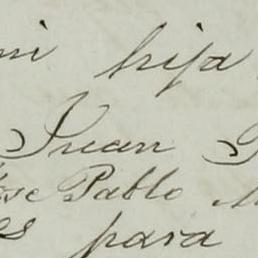 mi hija
Juan
Jose Pablo
es para